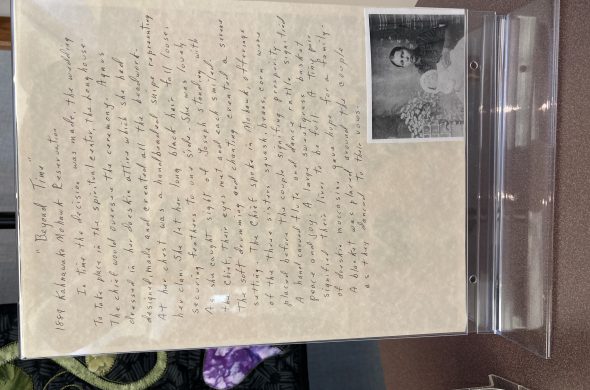 "Beyond Time"
1889 Kahnawake Mohawk Reservation
In time the decision was made, the wedding
to take place in the spiritual center, the longhouse
The chief would oversee the ceremony. Agnes
dressed in her doeskin attire which she had
designed, made and created all the beadwork.
At her chest was a handbeaded shape representing
her clan. She let her long black hair fall loose,
securing feathers to one side. She was lovely
As she caught sight of Joseph standing with
the Chief, their eyes met and each smiled
The soft drumming and chanting created a serene
setting. The Chief spoke in Mohawk, offerings
of the three sisters squash, beans, corn were
placed before the couple signifing prosperity
A hand carved flute and dance rattle signified
peace and joy. A large sweetgrass basket
signified their lives to be full. A tiny pair
of doeskin moccasins gave hope for a family.
A blanket was placed around the couple
as they danced to their vows.